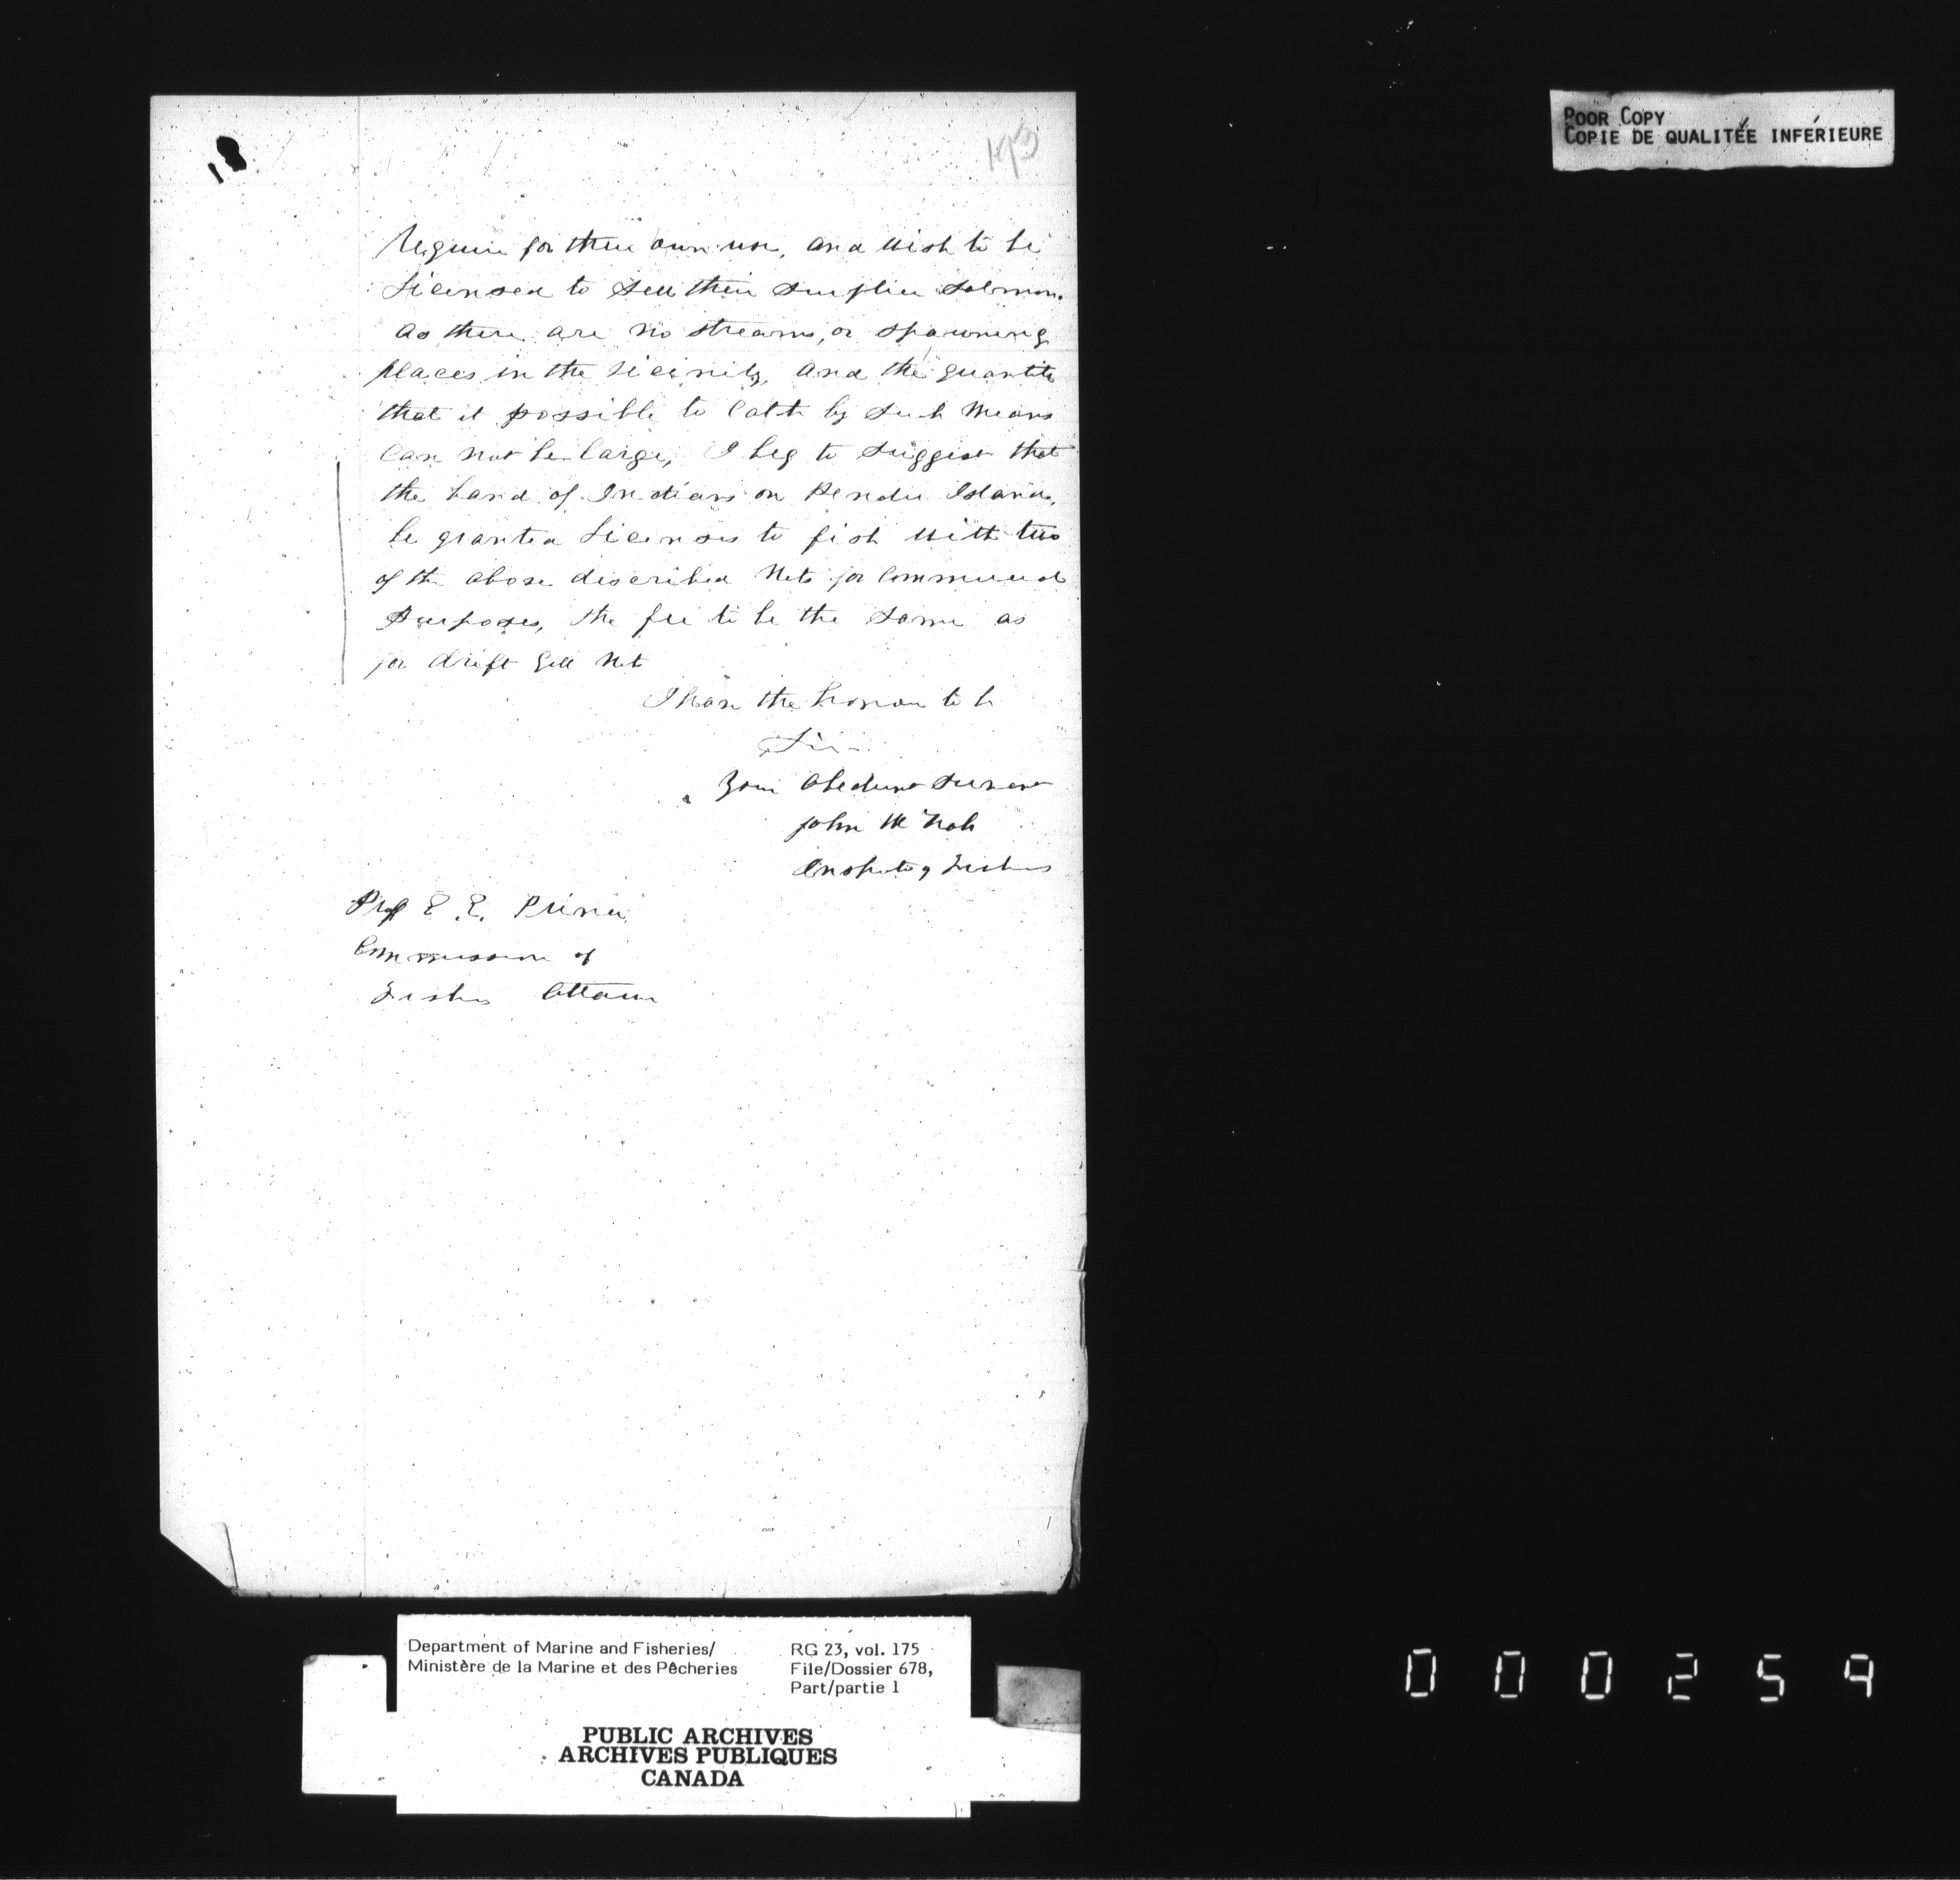 193
Require for their own use, and wish to be
Licensed to Sell their Surplus Salmon.
As there are no streams, or spawning
places in the vicinity, and the quantity
that it possible to Catch by Such Means
Can not be large, I beg to Suggest that
the band of Indians on Pender Island,
be granted Licenses to fish with two
of the above described Nets for Commercial
Purposes, the fee to be the Same as
for drift Gill Net
I have the honour to be
Sir
Your Obedient Servant
John McNab
Inspector of Fisheries
Prof E. E. Prince
Commissioner of
Fisheries Ottawa
POOR COPY
COPIE DE QUALITÉE INFÉRIEURE
Department of Marine and Fisheries/
Ministère de la Marine et des Pêcheries
RG 23, vol. 175
File/Dossier 678,
Part/partie 1
PUBLIC ARCHIVES
ARCHIVES PUBLIQUES
CANADA
000259